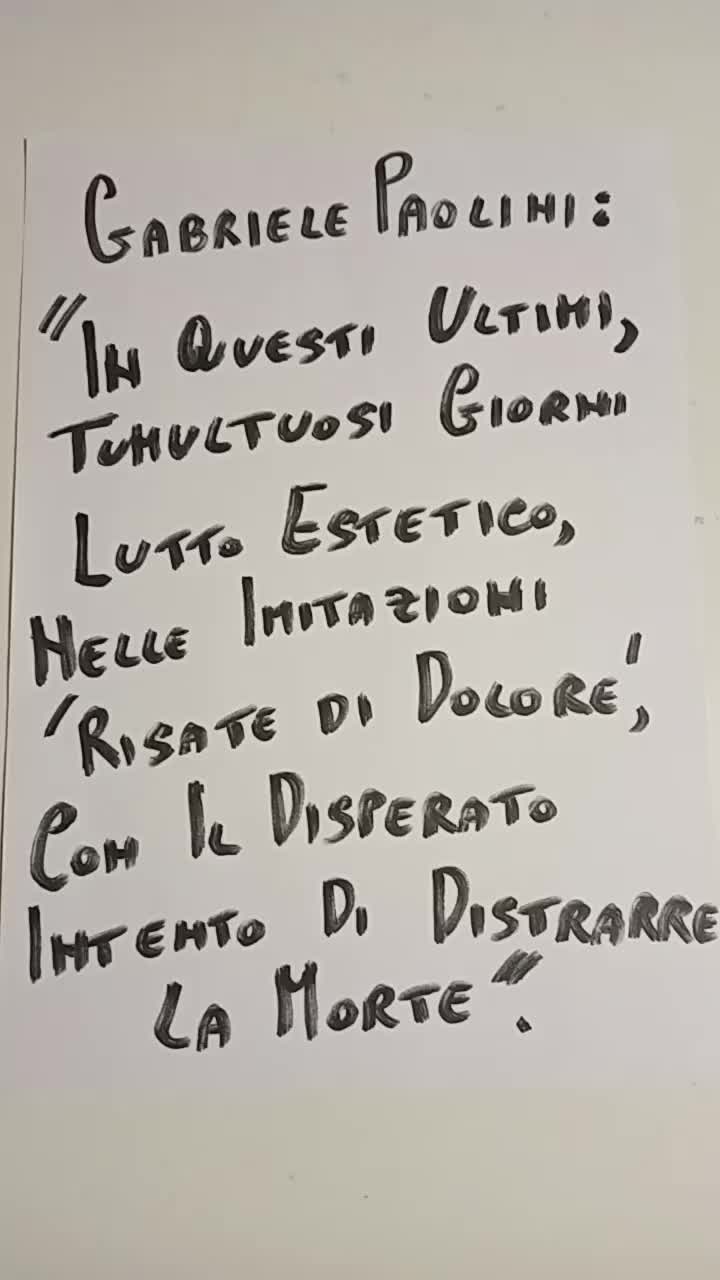 Gabriele Paolini:
"In Questi Ultimi,
Tumultuosi Giorni
Lutto Estetico,
Nelle Imitazioni
'Risate di Dolore',
Con Il Disperato
Intento Di Distrarre
La Morte".